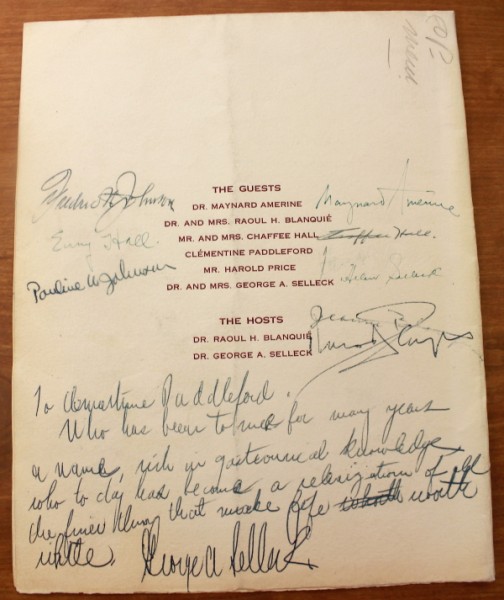 THE GUESTS
DR. MAYNARD AMERINE
Maynard Amerine
DR. AND MRS. RAOUL H. BLANQUIÉ
MR. AND MRS. CHAFFEE HALL
Chaffee Hall.
Emmy Hall.
CLÉMENTINE PADDLEFORD
MR. HAROLD PRICE
DR. AND MRS. GEORGE A. SELLECK
Helen Selleck
THE HOSTS
DR. RAOUL H. BLANQUIÉ
DR. GEORGE A. SELLECK
To Clementine Paddleford.
Who has been to me for many years
a name, rich in gastronomical knowledge
who to day has become a of all
the finer things that make life worth
while.
George A Selleck